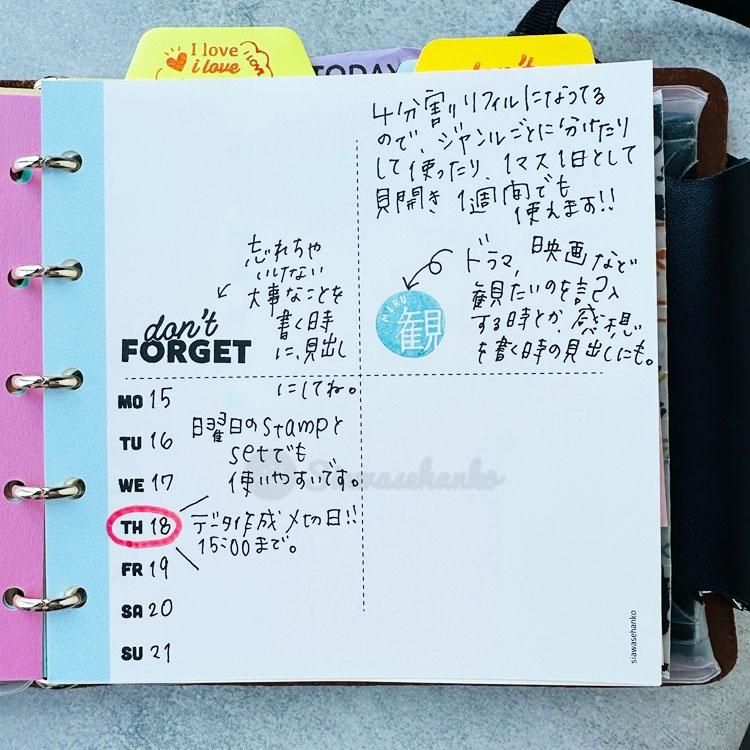 I love
i love
I LOVE
TODAY
don't
4分割リフィルになってる
ので、ジャンルごとに分けたり
して使ったり、1マス1日として
見開き1週間でも
使えます!!
忘れちゃ
いけない
大事なことを
書く時
に、見出し
にしてね。
don't
FORGET
ドラマ、映画など
観たいのを記入
する時とか、感想
を書く時の見出しにも。
MIRU
観
MO 15
TU 16
WE 17
TH 18
FR 19
SA 20
SU 21
曜日のstampと
setでも
使いやすいです。
データ作成〆切の日!!
15:00まで。
Siawasehanko
siawasehanko